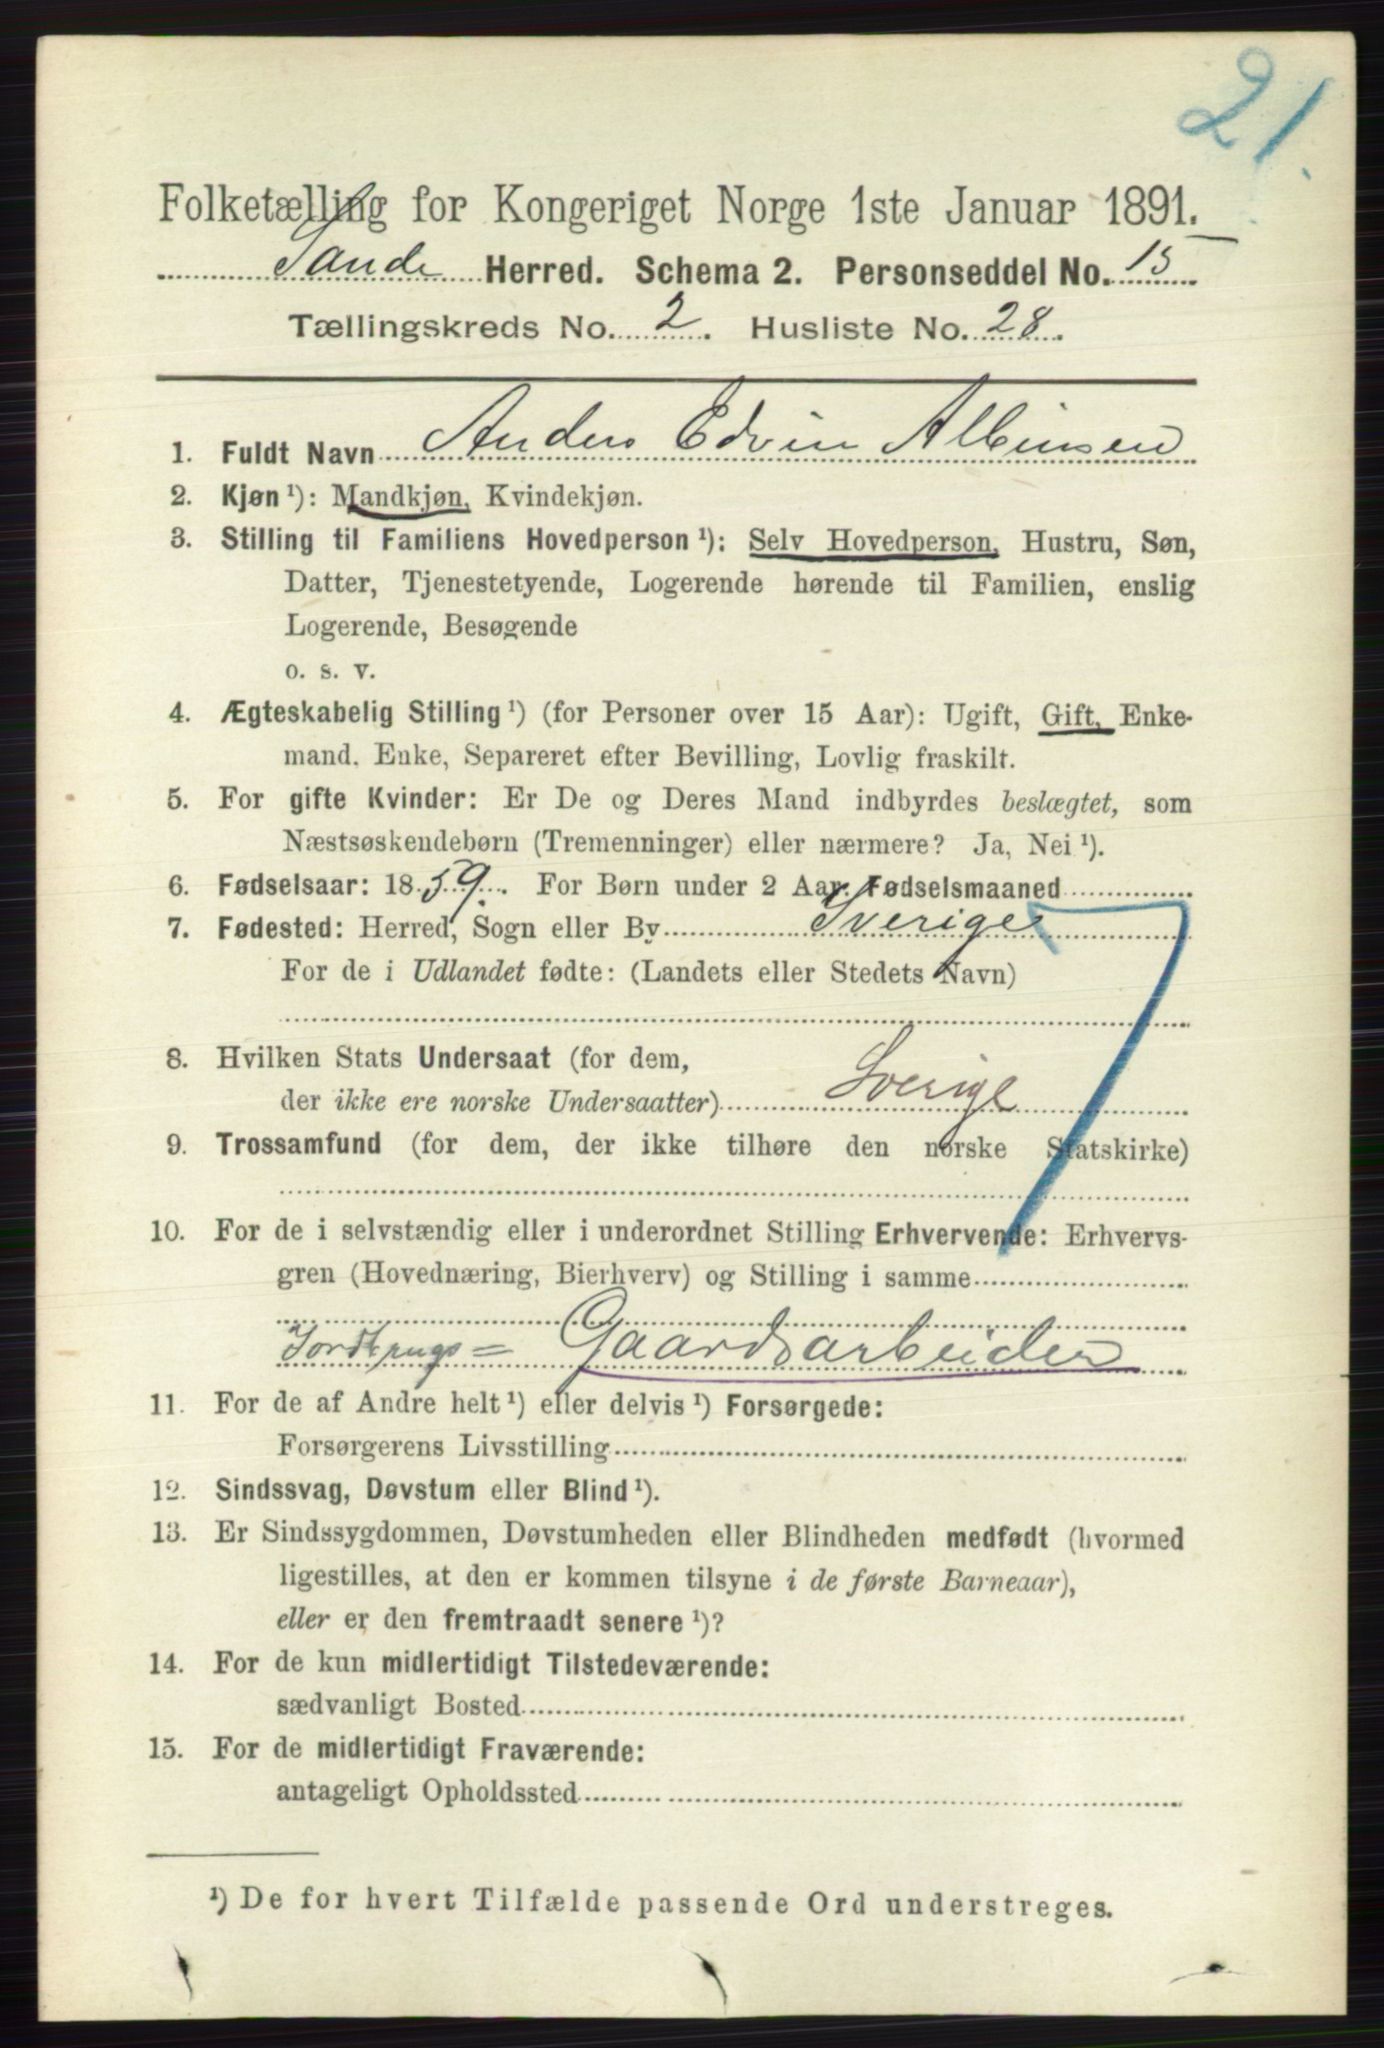 21.
Folketælling for Kongeriget Norge 1ste Januar 1891.
Sande Herred. Schema 2. Personseddel No. 15
Tællingskreds No. 2. Husliste No. 28.
1. Fuldt Navn Anders Edvin Albinsen
2. Kjøn ¹): Mandkjøn, Kvindekjøn.
3. Stilling til Familiens Hovedperson ¹): Selv Hovedperson, Hustru, Søn,
Datter, Tjenestetyende, Logerende hørende til Familien, enslig
Logerende, Besøgende
o. s. v.
4. Ægteskabelig Stilling ¹) (for Personer over 15 Aar): Ugift, Gift, Enke-
mand, Enke, Separeret efter Bevilling, Lovlig fraskilt.
5. For gifte Kvinder: Er De og Deres Mand indbyrdes beslægtet, som
Næstsøskendebørn (Tremenninger) eller nærmere? Ja, Nei ¹).
6. Fødselsaar: 1859. For Børn under 2 Aar: Fødselsmaaned
7. Fødested: Herred, Sogn eller By Sverige
For de i Udlandet fødte: (Landets eller Stedets Navn)
8. Hvilken Stats Undersaat (for dem,
der ikke ere norske Undersaatter) Sverige
9. Trossamfund (for dem, der ikke tilhøre den norske Statskirke)
10. For de i selvstændig eller i underordnet Stilling Erhvervende: Erhvervs-
gren (Hovednæring, Bierhverv) og Stilling i samme
Jordbrugs= Gaardsarbeider
11. For de af Andre helt ¹) eller delvis ¹) Forsørgede:
Forsørgerens Livsstilling
12. Sindssvag, Døvstum eller Blind ¹).
13. Er Sindssygdommen, Døvstumheden eller Blindheden medfødt (hvormed
ligestilles, at den er kommen tilsyne i de første Barneaar),
eller er den fremtraadt senere ¹)?
14. For de kun midlertidigt Tilstedeværende:
sædvanligt Bosted
15. For de midlertidigt Fraværende:
antageligt Opholdssted
¹) De for hvert Tilfælde passende Ord understreges.